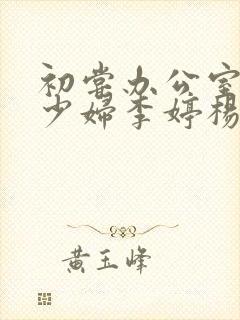 初尝办公室
少婦李婷杨
黄玉峰